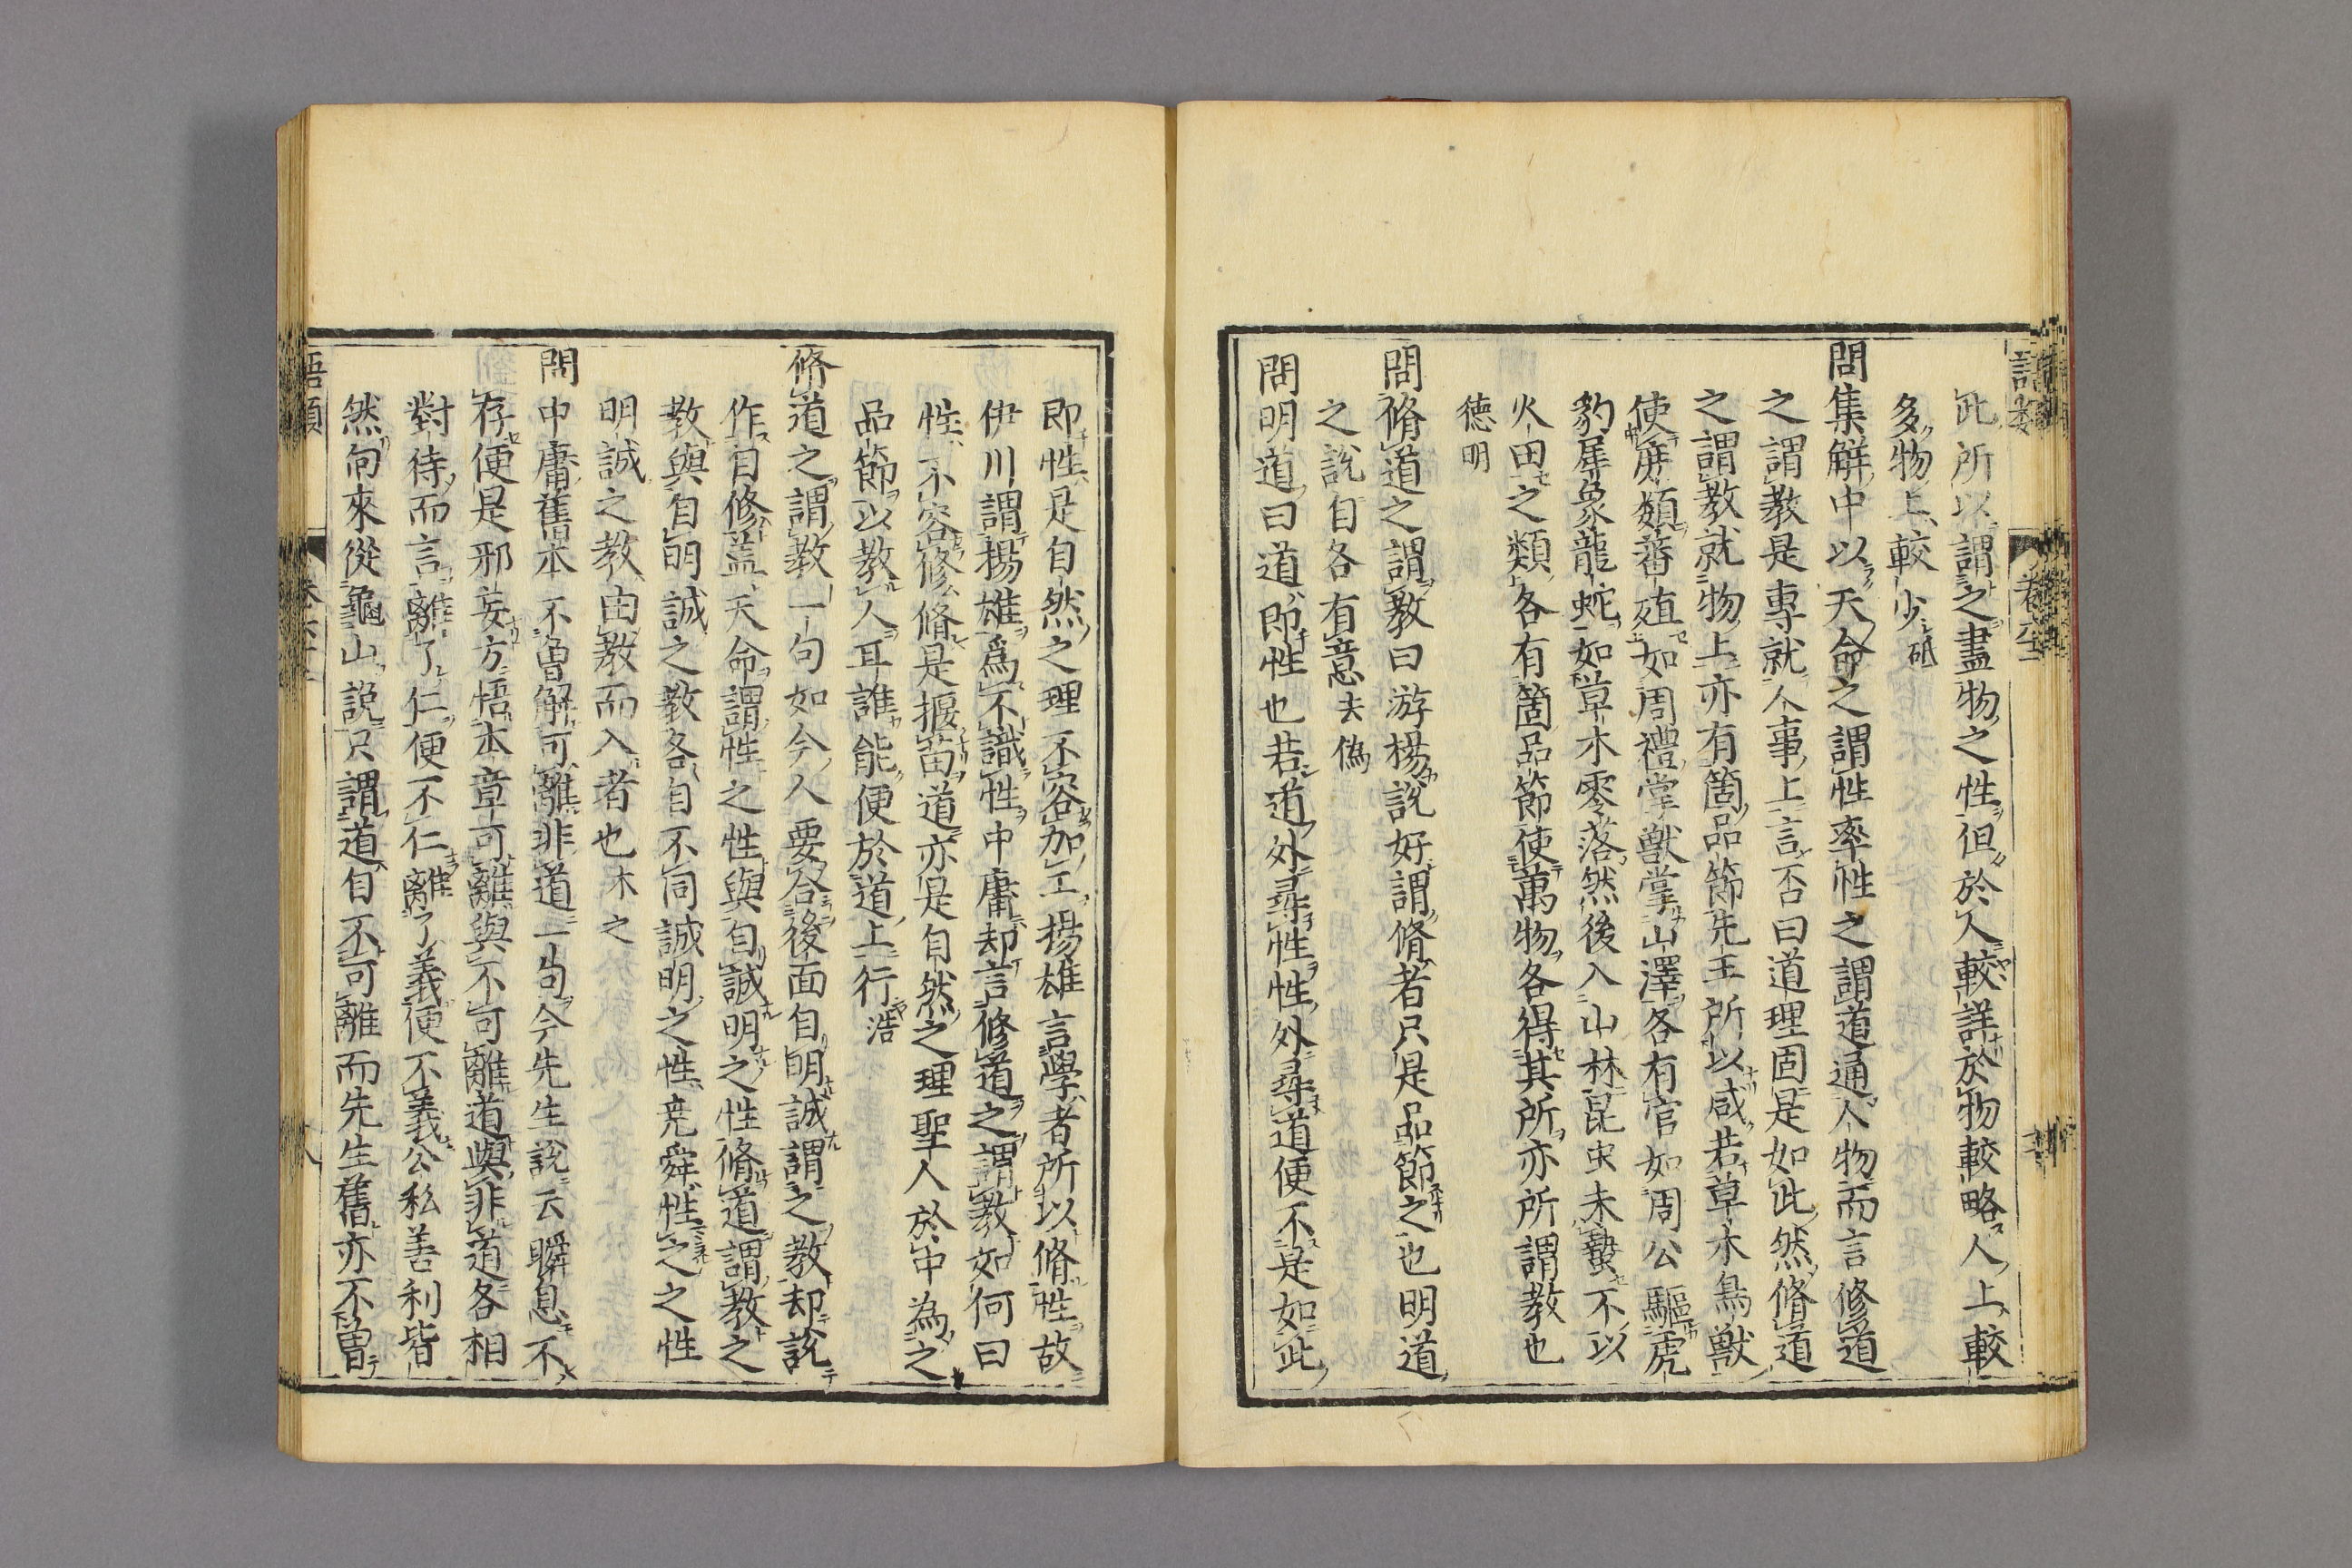 此所以謂之盡物之性但於人較詳於物較略人上較
多物上較少砥
問集解中以天命之謂性率性之謂道通人物而言修道
之謂教是專就人事上言否曰道理固是如此然脩道
之謂教就物上亦有箇品節先王所以咸若草木鳥獸
使庶類蕃殖如周禮掌獸掌山澤各有官如周公驅虎
豹犀象龍蛇如草木零落然後入山林昆虫未蟄不以
火田之類各有箇品節使萬物各得其所亦所謂教也
德明
問脩道之謂教曰游楊說好謂脩者只是品節之也明道
之說自各有意去偽
問明道曰道即性也若道外尋性性外尋道便不是如此
即性是自然之理不容加工揚雄言學者所以脩性故
伊川謂楊雄爲不識性中庸却言修道之謂教如何曰
性不容修脩是揠苗道亦是自然之理聖人於中為之
品節以教人耳誰能便於道上行浩
脩道之謂教一句如今人要合後面自明誠謂之教却說
作自修蓋天命謂性之性與自誠明之性脩道謂教之
教與自明誠之教各自不同誠明之性堯舜性之之性
明誠之教由教而入者也木之
問中庸舊本不曾解可離非道一句今先生說云瞬息不
存便是邪妄方悟本章可離與不可離道與非道各相
對待而言離了仁便不仁離了義便不義公私善利皆
然向來從龜山說只謂道自不可離而先生舊亦不曾